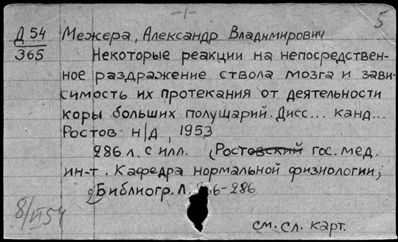 -1-
5
Д 54
365
Межера, Александр Владимирович
Некоторые реакции на непосредствен-
ное раздражение ствола мозга и зави-
симость их протекания от деятельности
коры больших полушарий. Дисс... канд...
Ростов н/Д, 1953
286 л. с илл. (Ростовский гос. мед.
ин-т. Кафедра нормальной физиологии)
Библиогр. Л. 6-286
8/VI 54
см. сл. карт.